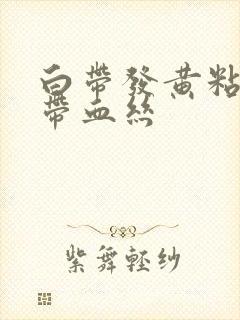 白帶發黄粘
帶血絲
紫舞輕纱